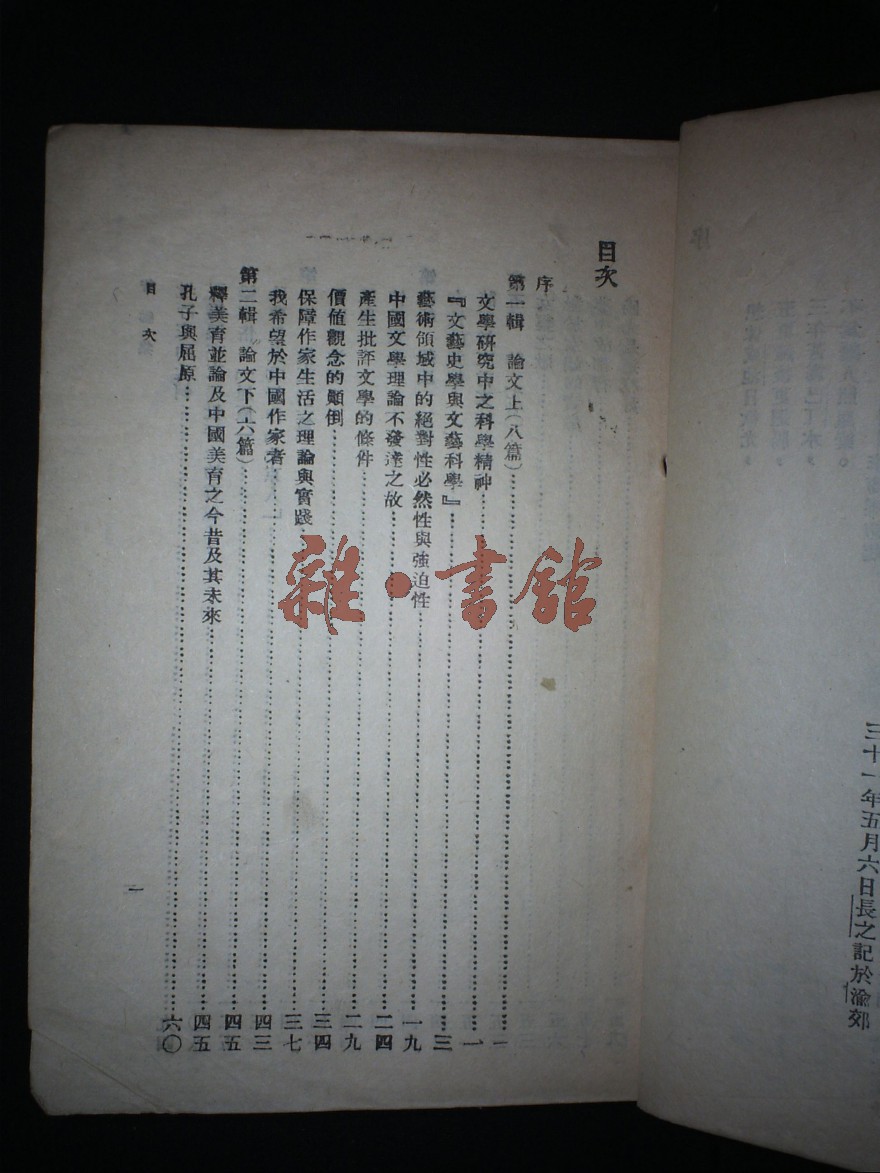 三十一年五月六日長之記於渝郊
目次
序
第一輯 論文上(八篇)……一
文學研究中之科學精神……一
『文藝史學與文藝科學』……三
藝術領域中的絕對性必然性與強迫性……一九
中國文學理論不發達之故……二四
產生批評文學的條件……二九
價值觀念的顛倒……三四
保障作家生活之理論與實踐……三七
我希望於中國作家者……四三
第二輯 論文下(六篇)……四五
釋美育並論及中國美育之今昔及其未來……四五
孔子與屈原……六〇
目次
一
雜·書館